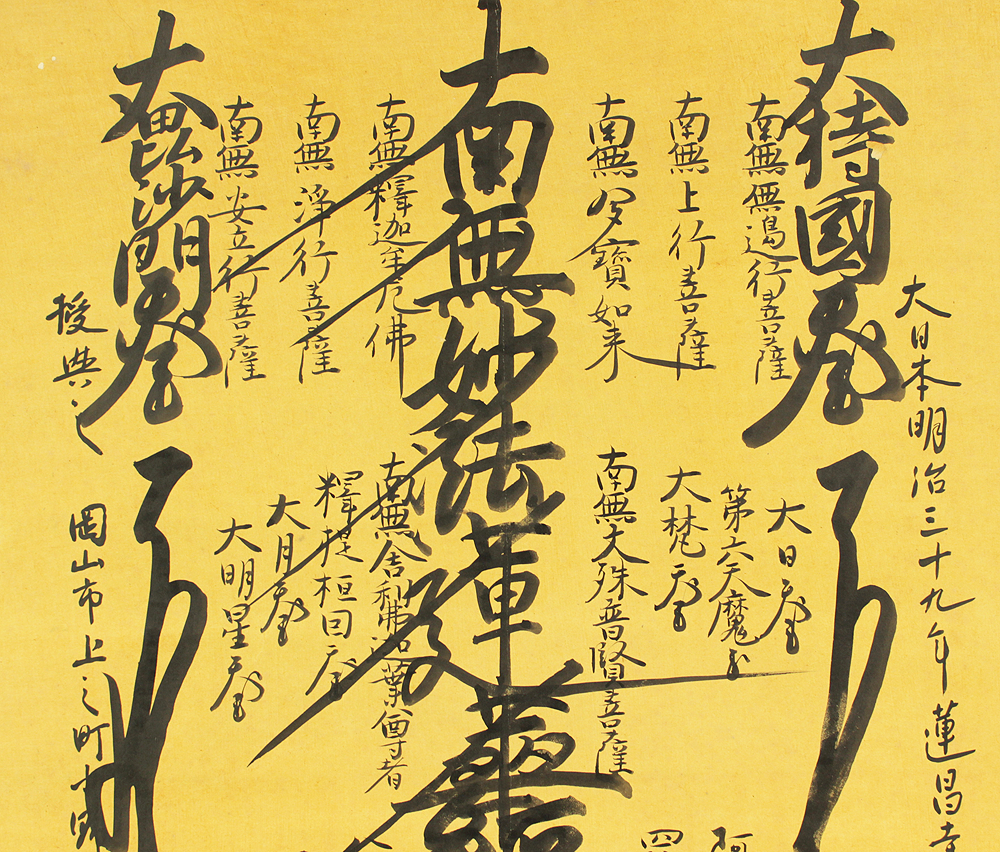 大日本明治三十九年蓮昌寺
大持國天王
南無無邊行菩薩
南無上行菩薩
南無多寶如来
南無妙法蓮華
南無釋迦牟尼佛
南無淨行菩薩
南無安立行菩薩
大毘沙門天王
授与之
大日天王
第六天魔王
大梵天王
南無文殊普賢菩薩
南無舎利弗迦葉尊者
釋提桓因天王
大月天王
大明星天王
岡山市上之町
四